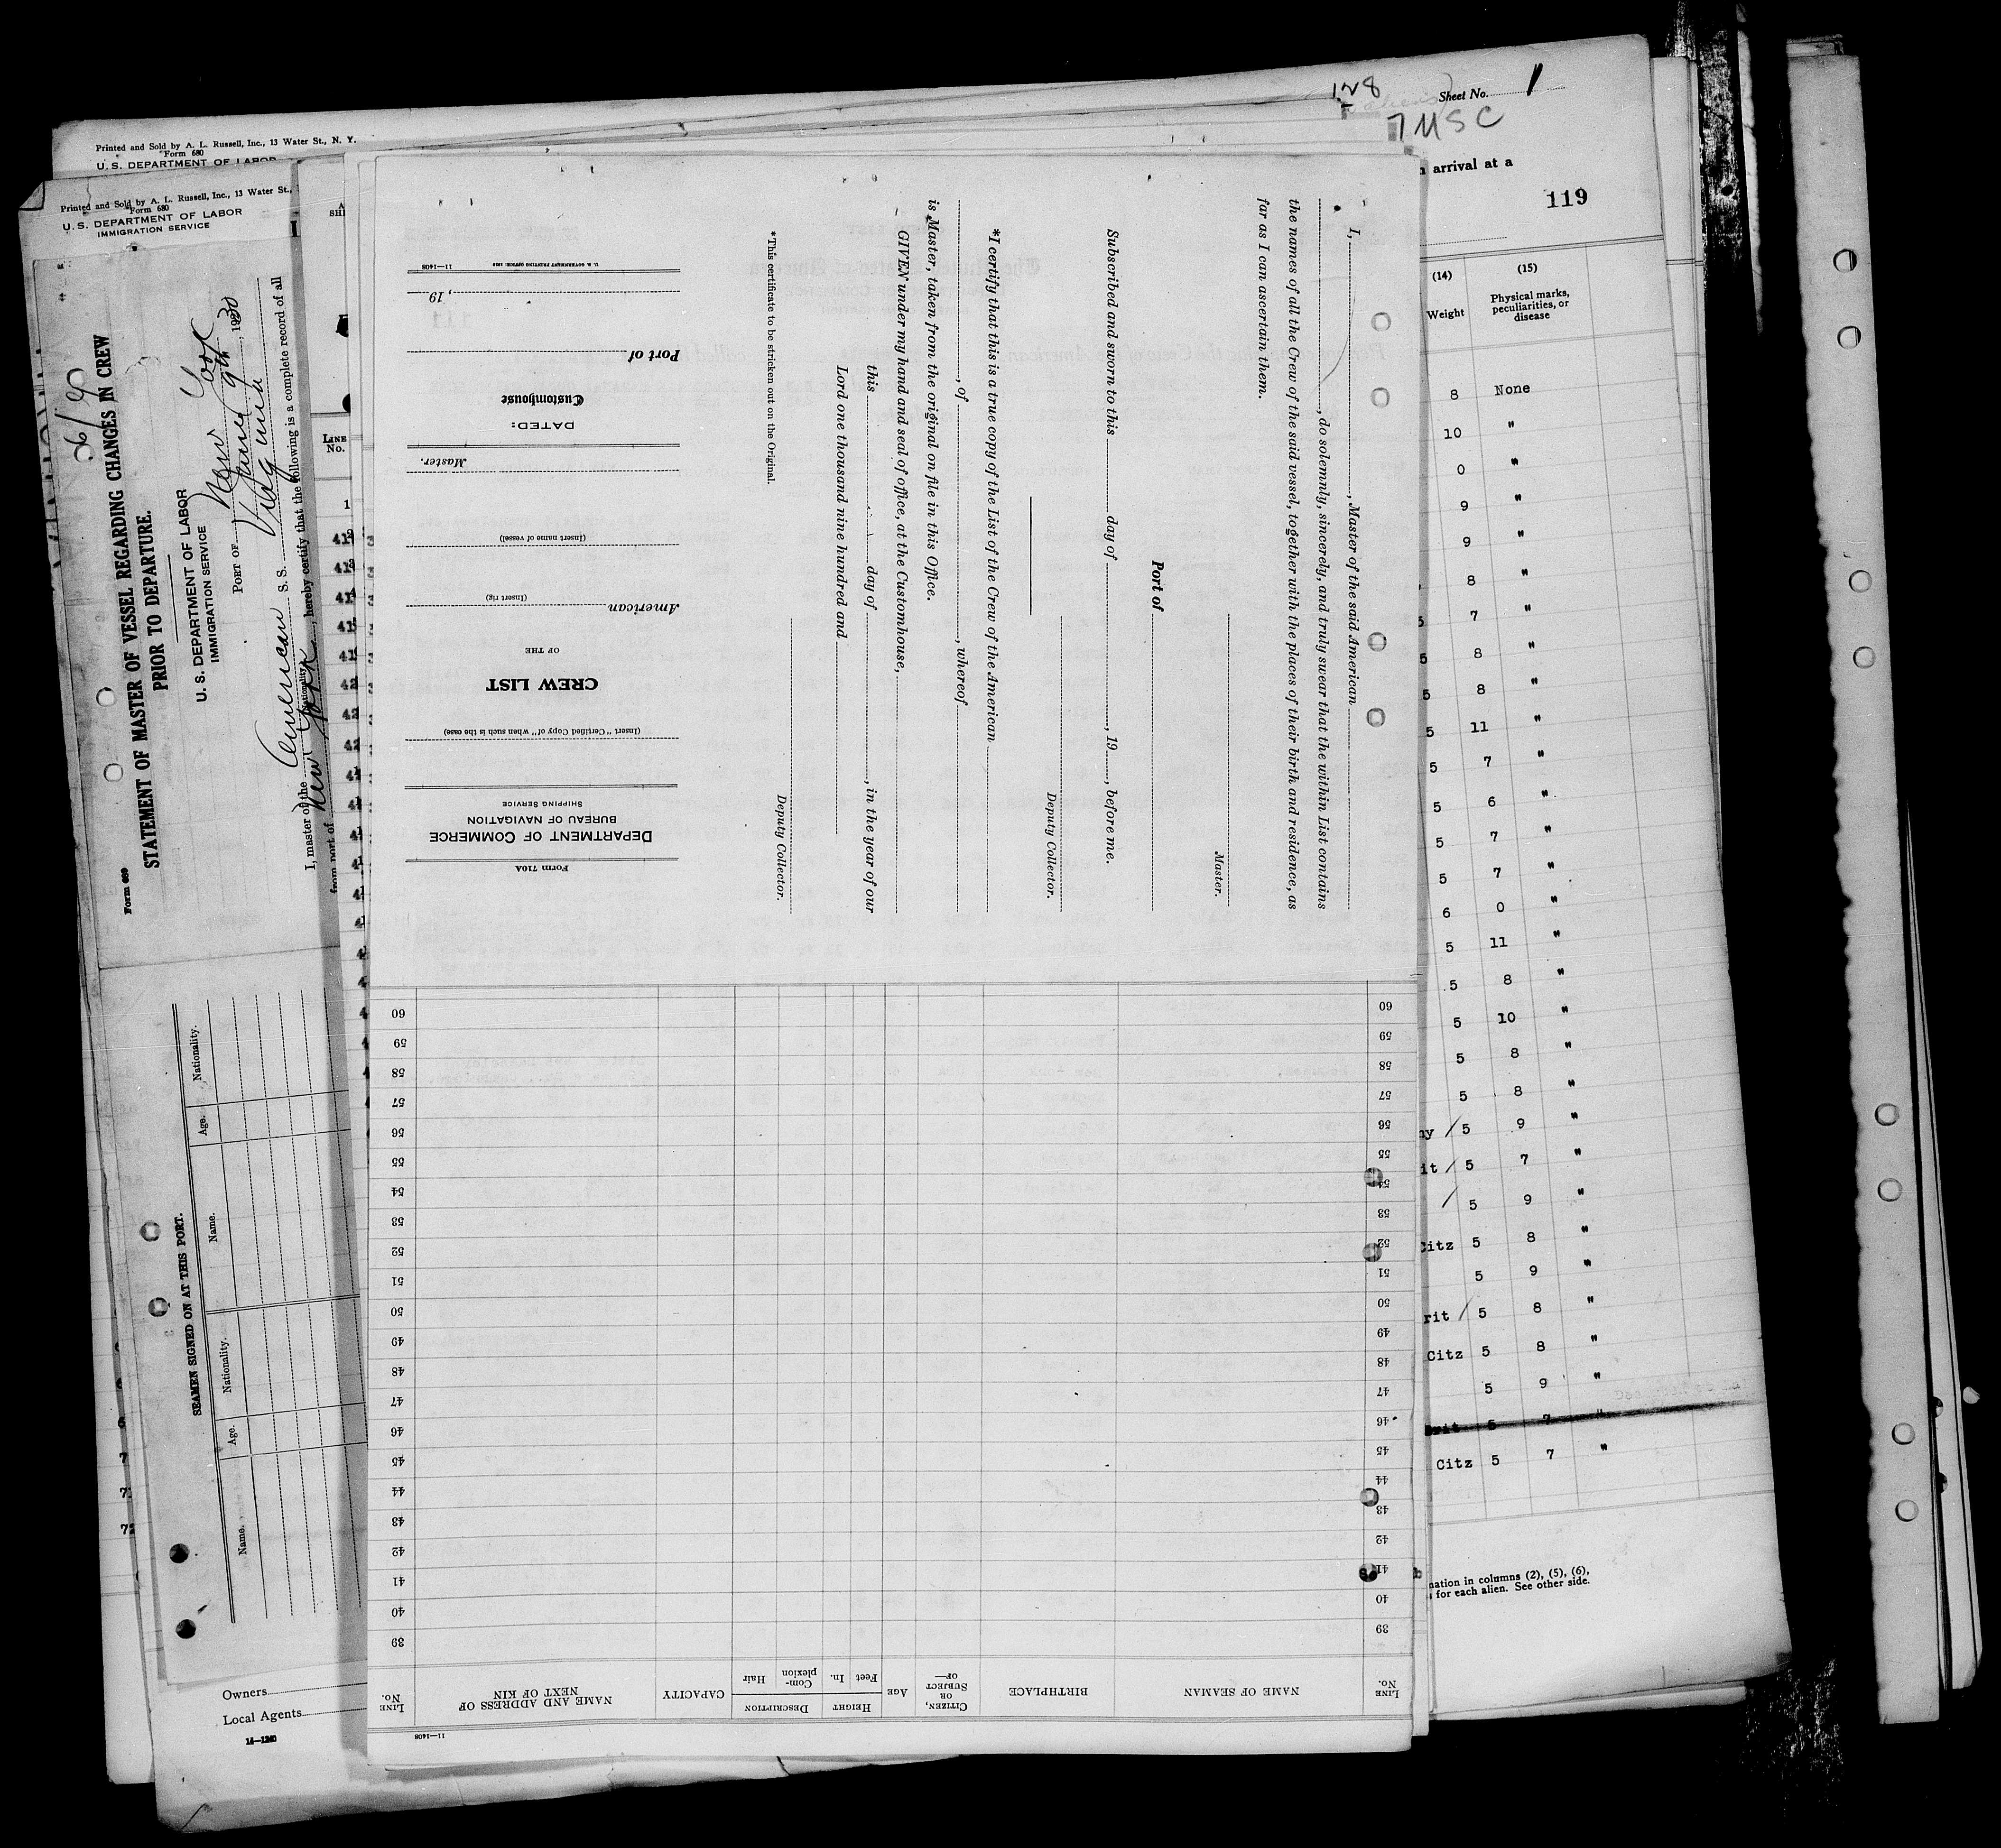 Printed and Sold by A. L. Russell, Inc., 13 Water St., N. Y.
Form 680
U. S. DEPARTMENT OF LABOR
Printed and Sold by A. L. Russell, Inc., 13 Water St.,
Form 680
U. S. DEPARTMENT OF LABOR
IMMIGRATION SERVICE
Form 689
STATEMENT OF MASTER OF VESSEL REGARDING CHANGES IN CREW
PRIOR TO DEPARTURE.
U. S. DEPARTMENT OF LABOR
IMMIGRATION SERVICE
PORT OF New York
June 9th, 1930
I, master of the American S. S. Virginia
(Nationality)
New York, hereby certify that the following is a complete record of all
from port of
SEAMEN SIGNED ON AT THIS PORT.
Name. Age. Nationality. Name. Age. Nationality.
Owners
Local Agents
14—1240
LINE No.
1
I, , Master of the said American
, do solemnly, sincerely, and truly swear that the within List contains
the names of all the Crew of the said vessel, together with the places of their birth and residence, as
far as I can ascertain them.
Master.
Port of
Subscribed and sworn to this day of , 19 , before me.
Deputy Collector.
*I certify that this is a true copy of the List of the Crew of the American
, of , whereof
is Master, taken from the original on file in this Office.
GIVEN under my hand and seal of office, at the Customhouse,
this day of , in the year of our
Lord one thousand nine hundred and
Deputy Collector.
*This certificate to be stricken out on the Original.
Form 710A
DEPARTMENT OF COMMERCE
BUREAU OF NAVIGATION
SHIPPING SERVICE
(Insert "Certified Copy of" when such is the case)
CREW LIST
OF THE
American
(Insert rig)
(Insert name of vessel)
Master.
DATED:
Customhouse
Port of
, 19
11—1408
U. S. GOVERNMENT PRINTING OFFICE:
11—1408
LINE No. NAME OF SEAMAN BIRTHPLACE CITIZEN, OR SUBJECT OF— AGE HEIGHT Feet In. DESCRIPTION Complexion Hair CAPACITY NAME AND ADDRESS OF NEXT OF KIN LINE No.
39 39
40 40
41 41
42 42
43 43
44 44
45 45
46 46
47 47
48 48
49 49
50 50
51 51
52 52
53 53
54 54
55 55
56 56
57 57
58 58
59 59
60 60
128
Sheet No. 1
7 USC
arrival at a
119
(14) (15)
Weight Physical marks, peculiarities, or disease
8 None
10 "
0 "
9 "
9 "
8 "
7 "
5 8 "
5 8 "
5 11 "
5 7 "
5 6 "
5 7 "
5 7 "
6 0 "
5 11 "
5 8 "
5 10 "
5 8 "
5 8 "
5 9 "
5 7 "
5 9 "
Citz 5 8 "
5 9 "
rit 5 8 "
Citz 5 8 "
5 9 "
Brit 5 7 "
Citz 5 7 "
nation in columns (2), (5), (6),
for each alien. See other side.